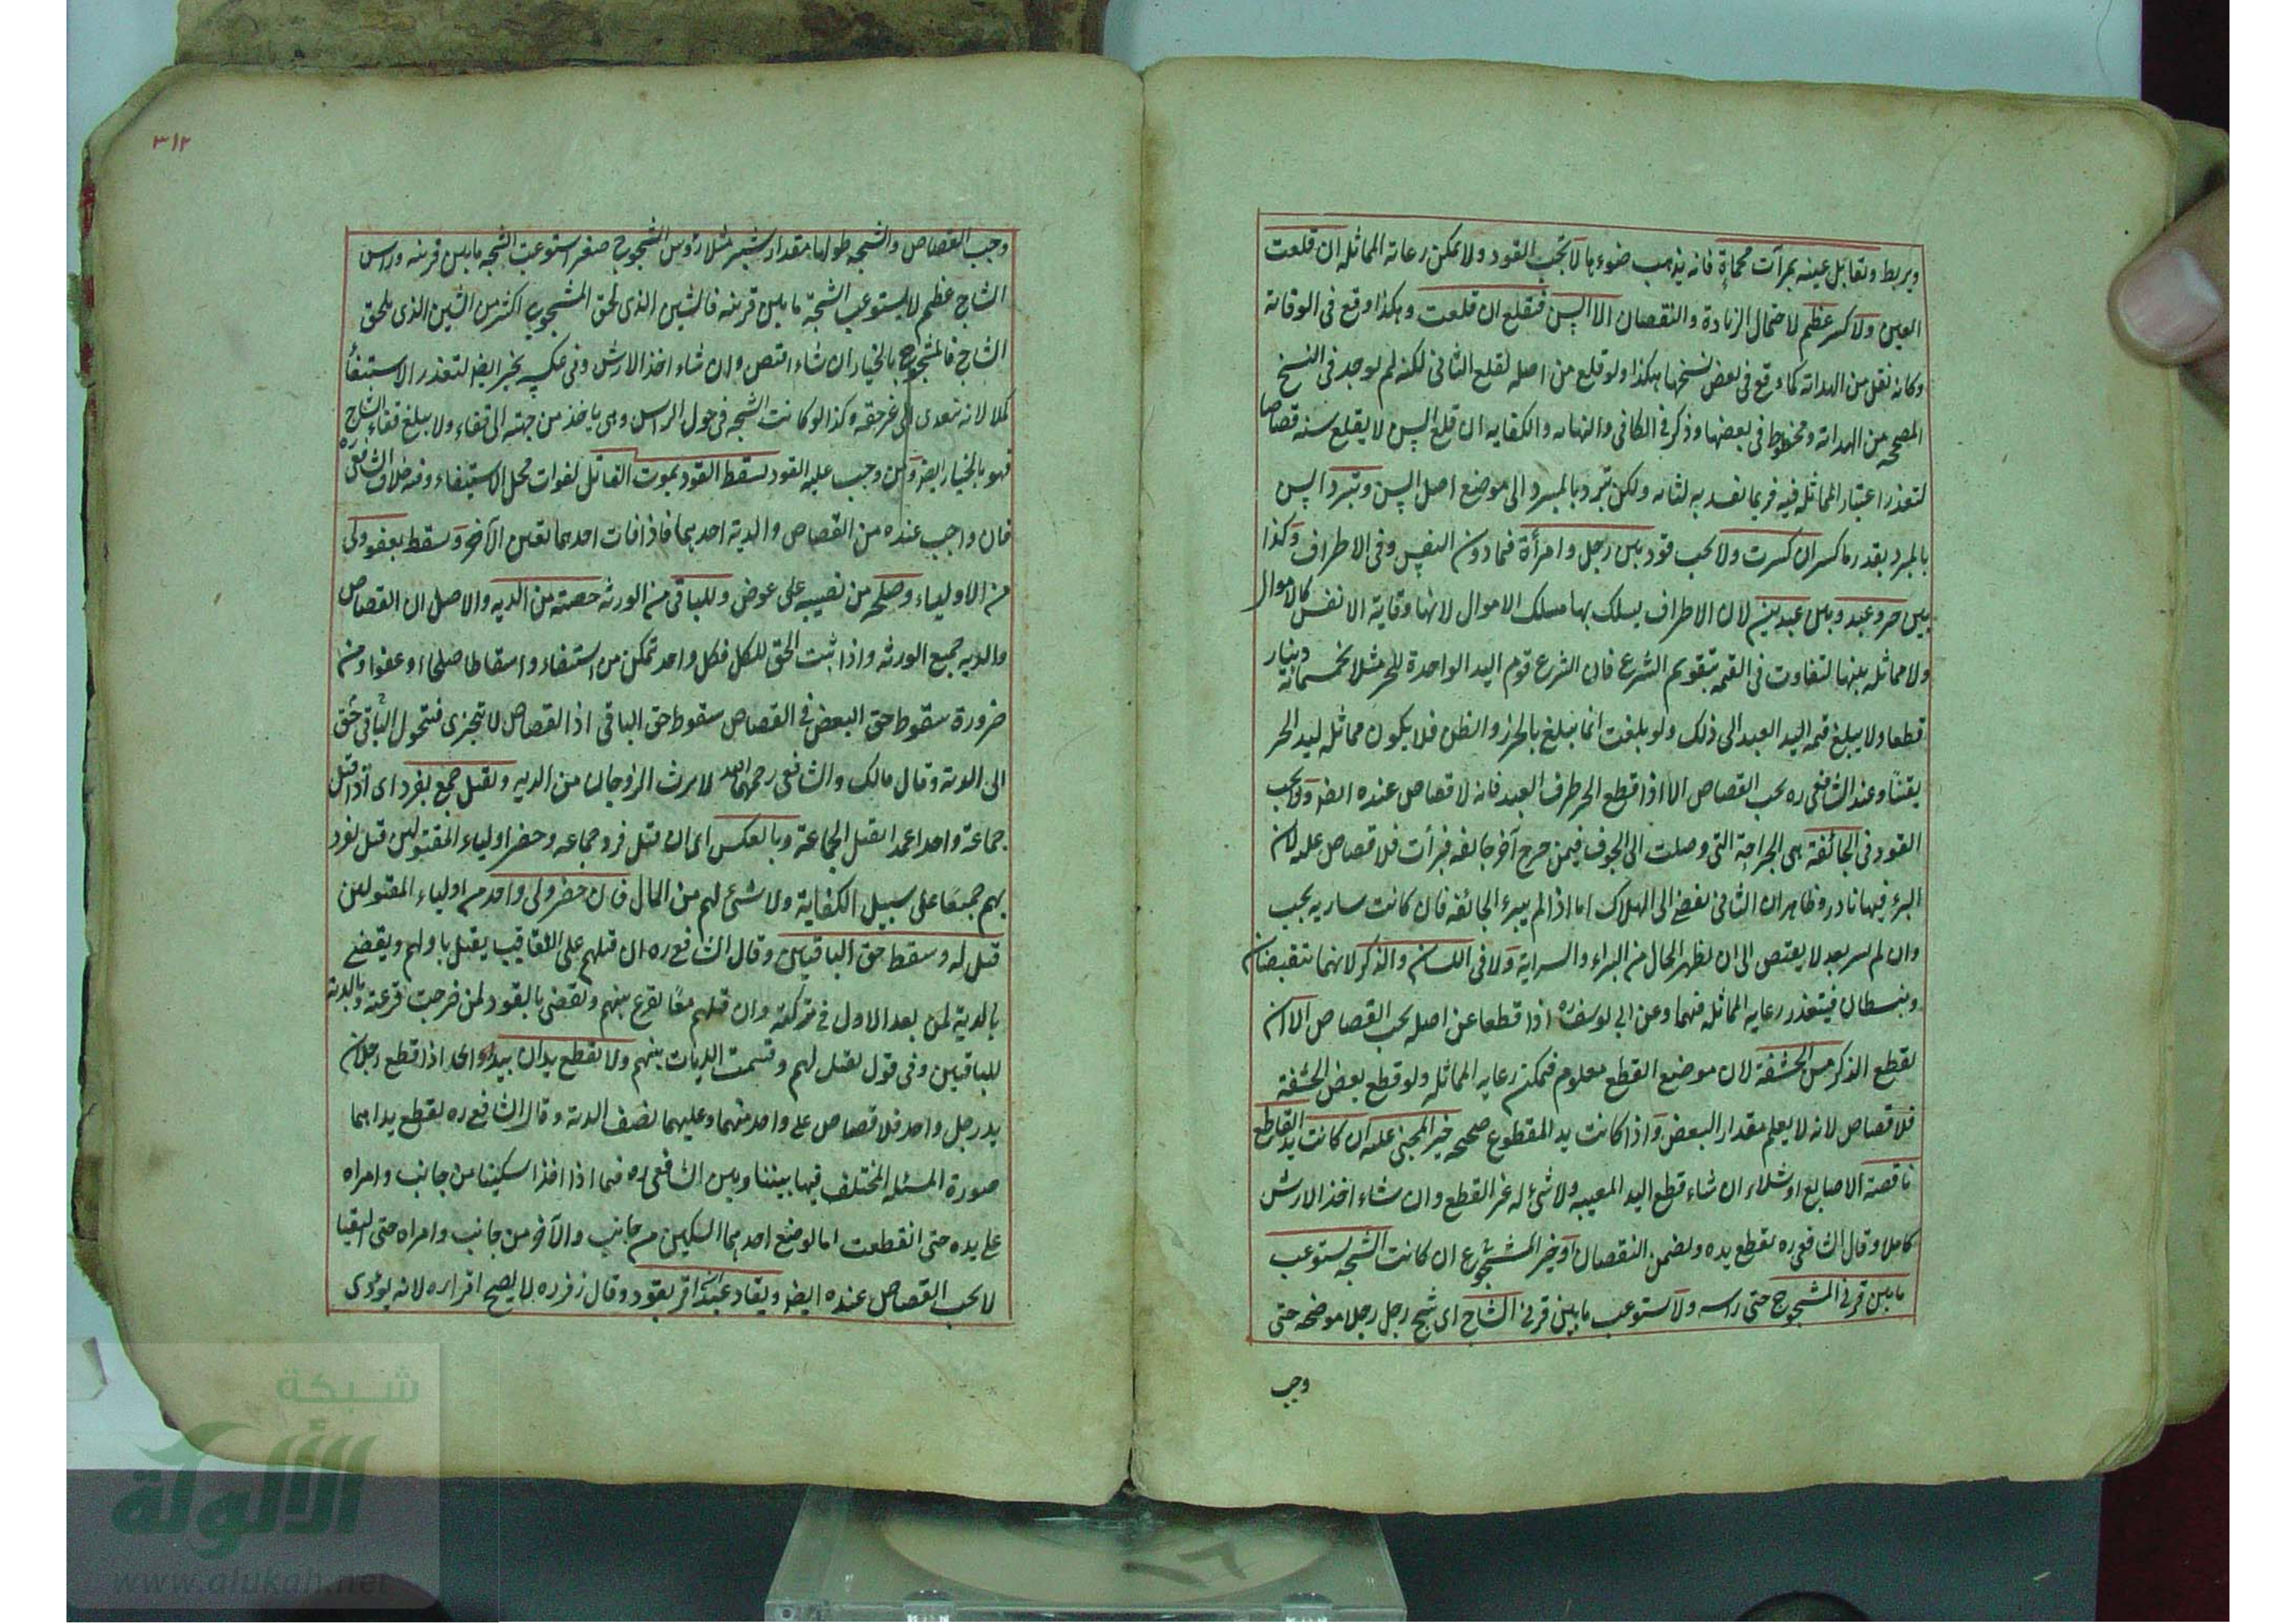 ويربط وتقابل عينه بمرآت محماة فانه يذهب ضوءها لا تجب القود ولا يمكن رعاية المماثلة ان قلعت
العين ولا كسر عظم لاحتمال الزيادة والنقصان الا السن فتقلع ان قلعت وهكذا وقع في الوقاية
وكانه نقل من الهداية كما وقع في بعض نسخها هكذا ولو قلع من اصله تقلع الثاني لكنه لم يوجد في النسخ
المصححه من الهداية ومخطوط في بعضها وذكر في الكافي والنهايه والكفايه ان قلع السن لا يقلع سنه قصاصا
لتعذر اعتبار المماثلة فيه فربما تفسد به لثاته ولكن تبرد بالمبرد الى موضع اصل السن وتبرد السن
بالمبرد بقدر ما كسر ان كسرت ولا يجب قود بين رجل وامرأة فيما دون النفس وفي الاطراف وكذا
بين حر وعبد وبين عبدين لان الاطراف يسلك بها مسلك الاموال لانها وقاية الانفس كالاموال
ولا مماثله بينها لتفاوت في القيمه بتقويم الشرع فان الشرع قوم اليد الواحدة للحر مثلا بخمسمائة دينار
قطعا ولا يبلغ قيمه اليد العبد الى ذلك ولو بلغت انما يبلغ بالحرز والظن فلا يكون مماثله ليد الحر
يقينا وعند الشافعي ره يجب القصاص الا اذا قطع الحر طرف العبد فانه لا قصاص عنده ايضا ولا يجب
القود في الجائفة هي الجراحة التي وصلت الى الجوف فيمن جرح آخر جائفه فبرأت فلا قصاص عليه لان
البرء فيها نادر وظاهر ان الثاني يفضي الى الهلاك اما اذا لم يبرء الجائفه فان كانت ساريه يجب
وان لم يسر بعد لا يقتص الى ان يظهر الحال من البراء والسراية ولا في اللسان والذكر لانهما ينقبضان
وينبسطان فيتعذر رعايه المماثله فيهما وعن ابي يوسف ره اذا قطعا عن اصله يجب القصاص الا ان
يقطع الذكر من الحشفة لان موضع القطع معلوم فيمكن رعايه المماثله ولو قطع بعض الحشفة
فلا قصاص لانه لا يعلم مقدار البعض واذا كانت يد المقطوع صحيحه خير المجني عليه ان كانت يد القاطع
ناقصة الاصابع او شلاء ان شاء قطع اليد المعيبه ولا شئ له غير القطع وان شاء اخذ الارش
كاملا وقال الشافعي ره يقطع يده ويضمن النقصان او خير المشجوج ان كانت الشجه يستوعب
ما بين قرني المشجوج حتى راسه ولا يستوعب ما بين قرني الشاج اى شج رجل رجلا موضحه حتى
وجب
٣١٢
وجب القصاص والشجه طولها مقدار شبر مثلا رؤس المشجوج صغير استوعبت الشجه ما بين قرنيه وراس
الشاج عظيم لا يستوعب الشجة ما بين قرنيه فالشين الذى لحق المشجوج اكثر من الشين الذى يلحق
الشاج فالمشجوج بالخيار ان شاء اقتص وان شاء اخذ الارش وفي عكسه يخير ايضا لتعذر الاستيفأ
كملا لانه تعدى الى غير حقه وكذا لو كانت الشجه في حول الراس وهي ياخذ من جبهته الى قفاه ولا يبلغ قفاء الشاج
فهو بالخيار ايضا ومن وجب عليه القود يسقط القود بموت القاتل لفوات محل الاستيفاء وفيه خلاف الشافعي ره
فان واجب عنده من القصاص والدية احدهما فاذا فات احدهما تعين الآخر ويسقط بعفو ولى
من الاولياء وصلحه من نصيبه على عوض وللباقي من الورثه حصته من الديه والاصل ان القصاص
والديه جميع الورثه واذا ثبت الحق للكل فكل واحد تمكن من استيفاء واسقاطا صلحا او عفوا ومن
ضرورة سقوط حق البعض في القصاص سقوط حق الباقي اذ القصاص لا يتجزى فيتحول الباقي حق
الى الدية وقال مالك والشافعي رحمهما الله لا يرث الزوجان من الديه ويقتل جمع بفرد اى اذا قتل
جماعة واحدا عمدا يقتل الجماعة وبالعكس اى ان قتل فرد جماعه وحضر اولياء المقتولين قتل لفرد
بهم جميعا على سبيل الكفاية ولا شئ لهم من المال فان حضر ولى واحد من اولياء المقتولين
قتل له وسقط حق الباقين وقال الشافعي ره ان قتلهم على التعاقب يقتل باولهم ويقضى
بالدية لمن بعد الاول في تركته وان قتلهم معا يقرع بينهم ويقضى بالقود لمن خرجت قرعته وبالدية
للباقين وفي قول يقتل لهم وقسمت الديات بينهم ولا يقطع يدان بيد واحد اذا قطع رجلان
يد رجل واحد فلا قصاص على واحد منهما وعليهما نصف الدية وقال الشافعي ره يقطع يداهما
صورة المسئله المختلف فيها بيننا وبين الشافعي ره فيما اذا اخذا سكينا من جانب وامراه
على يده حتى انقطعت اما لو وضع احدهما السكين من جانب والآخر من جانب وامراه حتى التقيا
لا يجب القصاص عنده ايضا ويقاد عبد ان اقر بقود وقال زفر ره لا يصح اقراره لانه يؤدى
شبكة
الألوكة
www.alukah.net